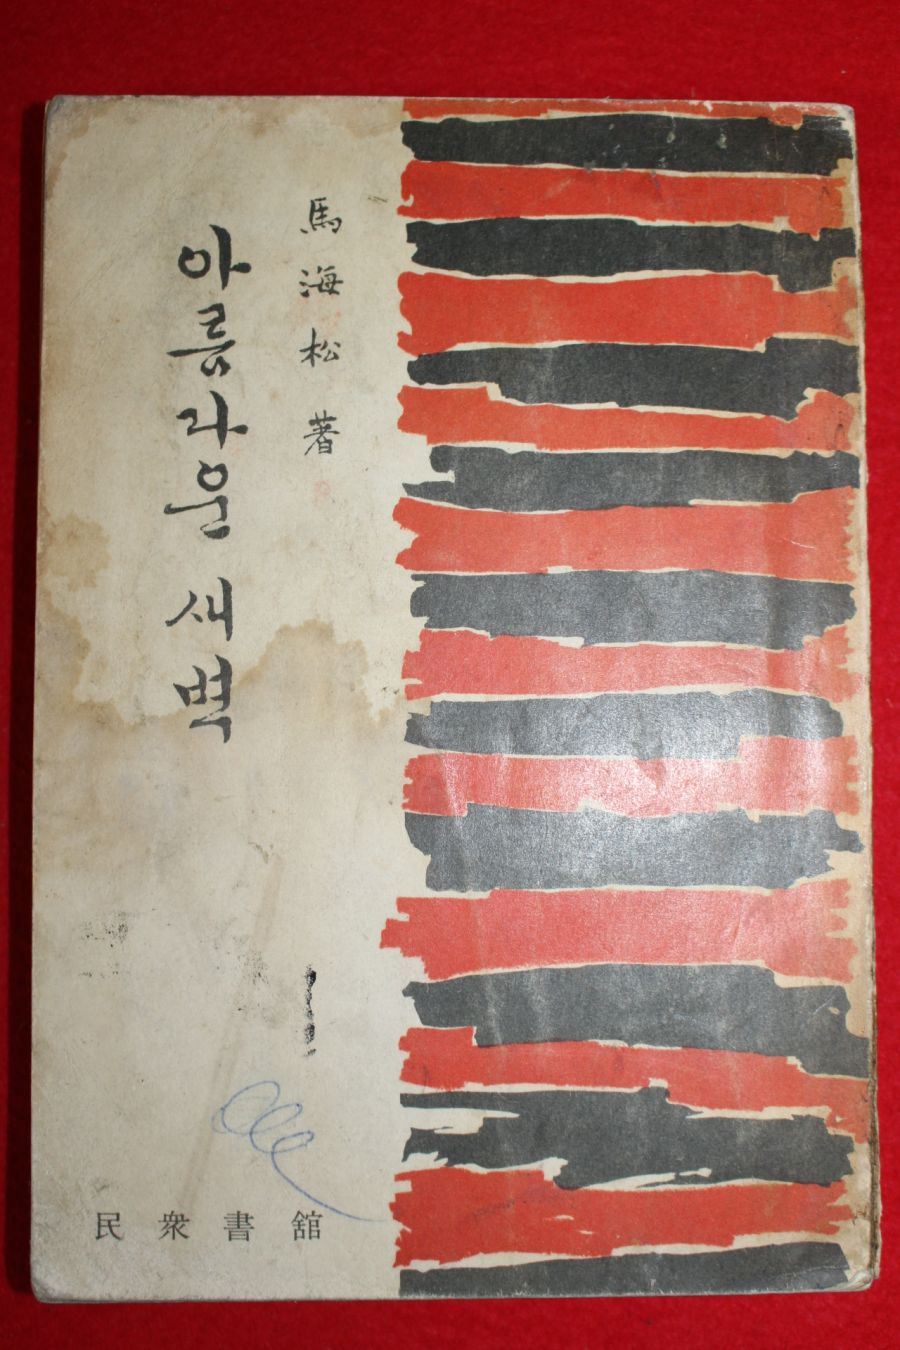 馬海松 著
아름다운 새벽
民衆書館